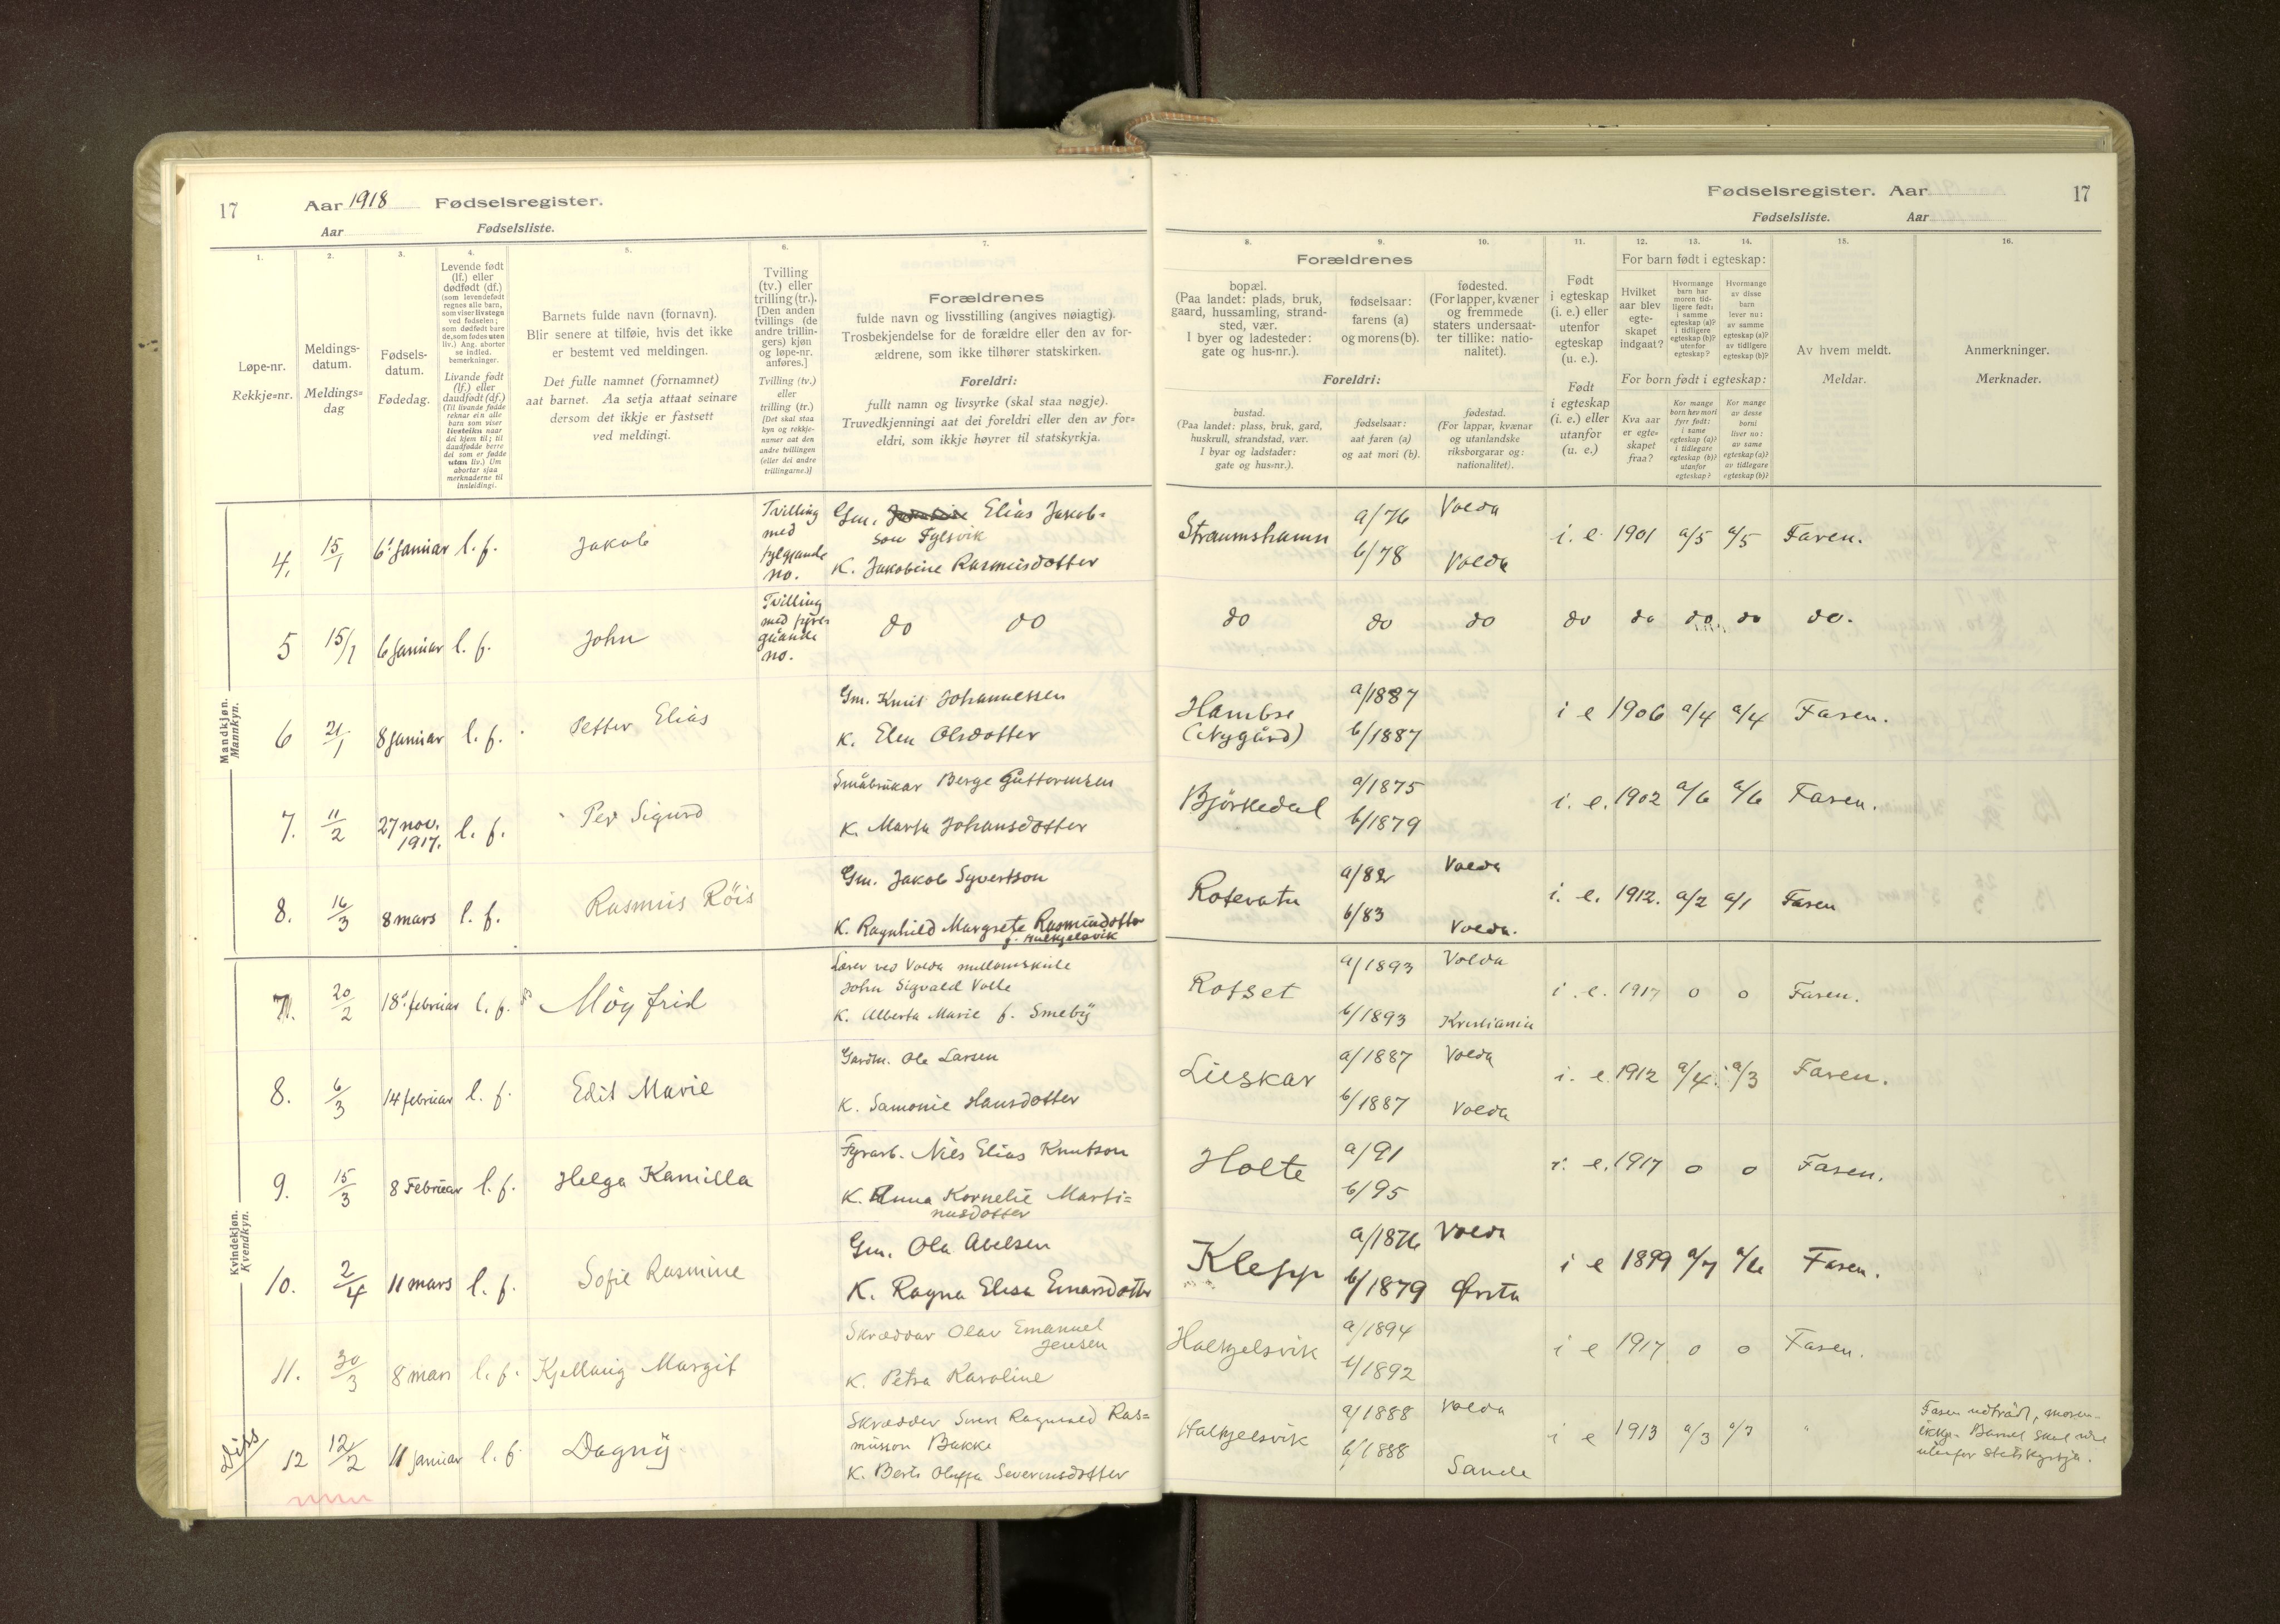 17 Aar 1918 Fødselsregister.
Aar Fødselsliste.
1. 2. 3. 4. 5. 6. 7.
Løpe-nr.
Rekkje=nr.
Meldings-
datum.
Meldings=
dag
Fødsels-
datum.
Fødedag.
Levende født
(lf.) eller
dødfødt (df.)
(som levendefødt
regnes alle barn,
som viser livstegn
ved fødselen;
som dødfødt bare
de, som fødes uten
liv.) Ang. aborter
se indled.
bemerkninger.
Livande født
(lf.) eller
daudfødt (df.)
(Til livande fødde
reknar ein alle
barn som viser
livsteikn naar
dei kjem til; til
daudfødde berre
dei som er fødde
utan liv.) Um
abortar sjaa
merknaderne til
innleidingi.
Barnets fulde navn (fornavn).
Blir senere at tilføie, hvis det ikke
er bestemt ved meldingen.
Det fulle namnet (fornamnet)
aat barnet. Aa setja attaat seinare
dersom det ikkje er fastsett
ved meldingi.
Tvilling
(tv.) eller
trilling (tr.).
[Den anden
tvillings (de
andre trillin-
gers) kjøn
og løpe-nr.
anføres.]
Tvilling (tv.)
eller
trilling (tr.)
[Det skal staa
kyn og rekkje-
numer aat den
andre tvillingen
(eller dei andre
trillingarne.)]
Forældrenes
fulde navn og livsstilling (angives nøiagtig).
Trosbekjendelse for de forældre eller den av for-
ældrene, som ikke tilhører statskirken.
Foreldri:
fullt namn og livsyrke (skal staa nøgje).
Truvedkjenningi aat dei foreldri eller den av for=
eldri, som ikkje høyrer til statskyrkja.
Mandkjøn.
Mannkyn.
4. 15/1 6' januar l. f. Jakob
Tvilling
med
fylgjande
no.
Gm. Elias Jakob=
son Fylsvik
K. Jakobine Rasmusdotter
5 15/1 6 januar l. f. John
Tvilling
med fyre=
gåande
no.
do do
6 21/1 8 januar l. f. Petter Elias
Gm. Knut Johannessen
K. Elen Olsdotter
7. 11/2 27 nov.
1917. l. f. Per Sigurd
Småbrukar Berge Guttormsen
K. Marta Johansdotter
8. 16/3 8 mars l. f. Rasmus Röis
Gm. Jakob Syvertson
K. Ragnhild Margrete Rasmusdotter
f. Halkjelsvik
Kvindekjøn.
Kvendkyn.
7. 20/2 18' februar l. f. Möyfrid
Lærer ved Volda millomskule
John Sigvald Volle
K. Alberta Marie f. Smeby
8. 6/3 14 februar l. f. Edit Marie
Gardm. Ole Larsen
K. Samonie Hansdotter
9. 15/3 8 Februar l. f. Helga Kamilla
Fyrarb. Nils Elias Knutson
K. Anna Kornelie Marti=
nusdotter
10. 2/4 11 mars l. f. Sofie Rasmine
Gm. Ola Abelsen
K. Ragna Elisa Einarsdotter
11. 30/3 8 mars l. f. Kjellaug Margit
Skræddar Olav Emanuel
Jensen
K. Petra Karoline
Diss 12 12/2 11 januar l. f. Dagny
Skrædder Sverr Ragnvald Ras=
musson Bakke
K. Berte Oluffa Severinsdotter
Fødselsregister. Aar 17
Fødselsliste. Aar
8. 9. 10. 11. 12. 13. 14. 15. 16.
Forældrenes
bopæl.
(Paa landet: plads, bruk,
gaard, hussamling, strand-
sted, vær.
I byer og ladesteder:
gate og hus-nr.).
fødselsaar:
farens (a)
og morens (b).
fødested.
(For lapper, kvæner
og fremmede
staters undersaat-
ter tillike: natio-
nalitet).
Foreldri:
bustad.
(Paa landet: plass, bruk, gard,
huskrull, strandstad, vær.
I byar og ladstader:
gate og hus=nr.).
fødselsaar:
aat faren (a)
og aat mori (b).
fødestad.
(For lappar, kvænar
og utanlandske
riksborgarar og:
nationalitet).
Født
i egteskap
(i. e.) eller
utenfor
egteskap
(u. e.).
Født
i egteskap
(i. e.) eller
utanfor
(u. e.)
For barn født i egteskap:
Hvilket
aar blev
egte-
skapet
indgaat?
Hvormange
barn har
moren tid-
ligere født:
i samme
egteskap (a)?
i tidligere
egteskap (b)?
utenfor
egteskap?
Hvormange
av disse
barn
lever nu:
av samme
egteskap (a)?
av tidligere
egteskap (b)?
For born født i egteskap:
Kva aar
er egte=
skapet
fraa?
Kor mange
born hev mori
fyrr født:
i same
egteskap (a)?
i tidlegare
egteskap (b)?
utanfor
egteskap?
Kor mange
av desse
borni
liver no:
av same
egteskap (a)?
av tidlegare
egteskap (b)?
Av hvem meldt.
Meldar.
Anmerkninger.
Merknader.
Straumshamn a/76 b/78 Volda Volda i. e. 1901 a/5 a/5 Faren.
do do do do do do do do.
Hambre
(Nygård) a/1887 b/1887 i e 1906 a/4 a/4 Faren.
Björkedal a/1875 b/1879 i. e. 1902 a/6 a/6 Faren.
Rotevatn a/82 b/83 Volda Volda. i. e. 1912. a/2 a/1 Faren
Rotset a/1893 b/1893 Volda Kristiania i. e. 1917 o o Faren.
Lieskar a/1887 b/1887 Volda Volda i. e. 1912 a/4. a/3 Faren.
Holte a/91 b/95 i. e. 1917 o o Faren.
Klepp a/1876 b/1879 Volda Ørsta i e 1899 a/7 a/6 Faren.
Halkjelsvik a/1894 b/1892 i e 1917 o o Faren.
Halkjelsvik a/1888 b/1888 Volda Sande i e 1913 a/3 a/3 "
Faren udtrådt, moren
ikkje. Barnet skal
utenfor Statskyrkja.